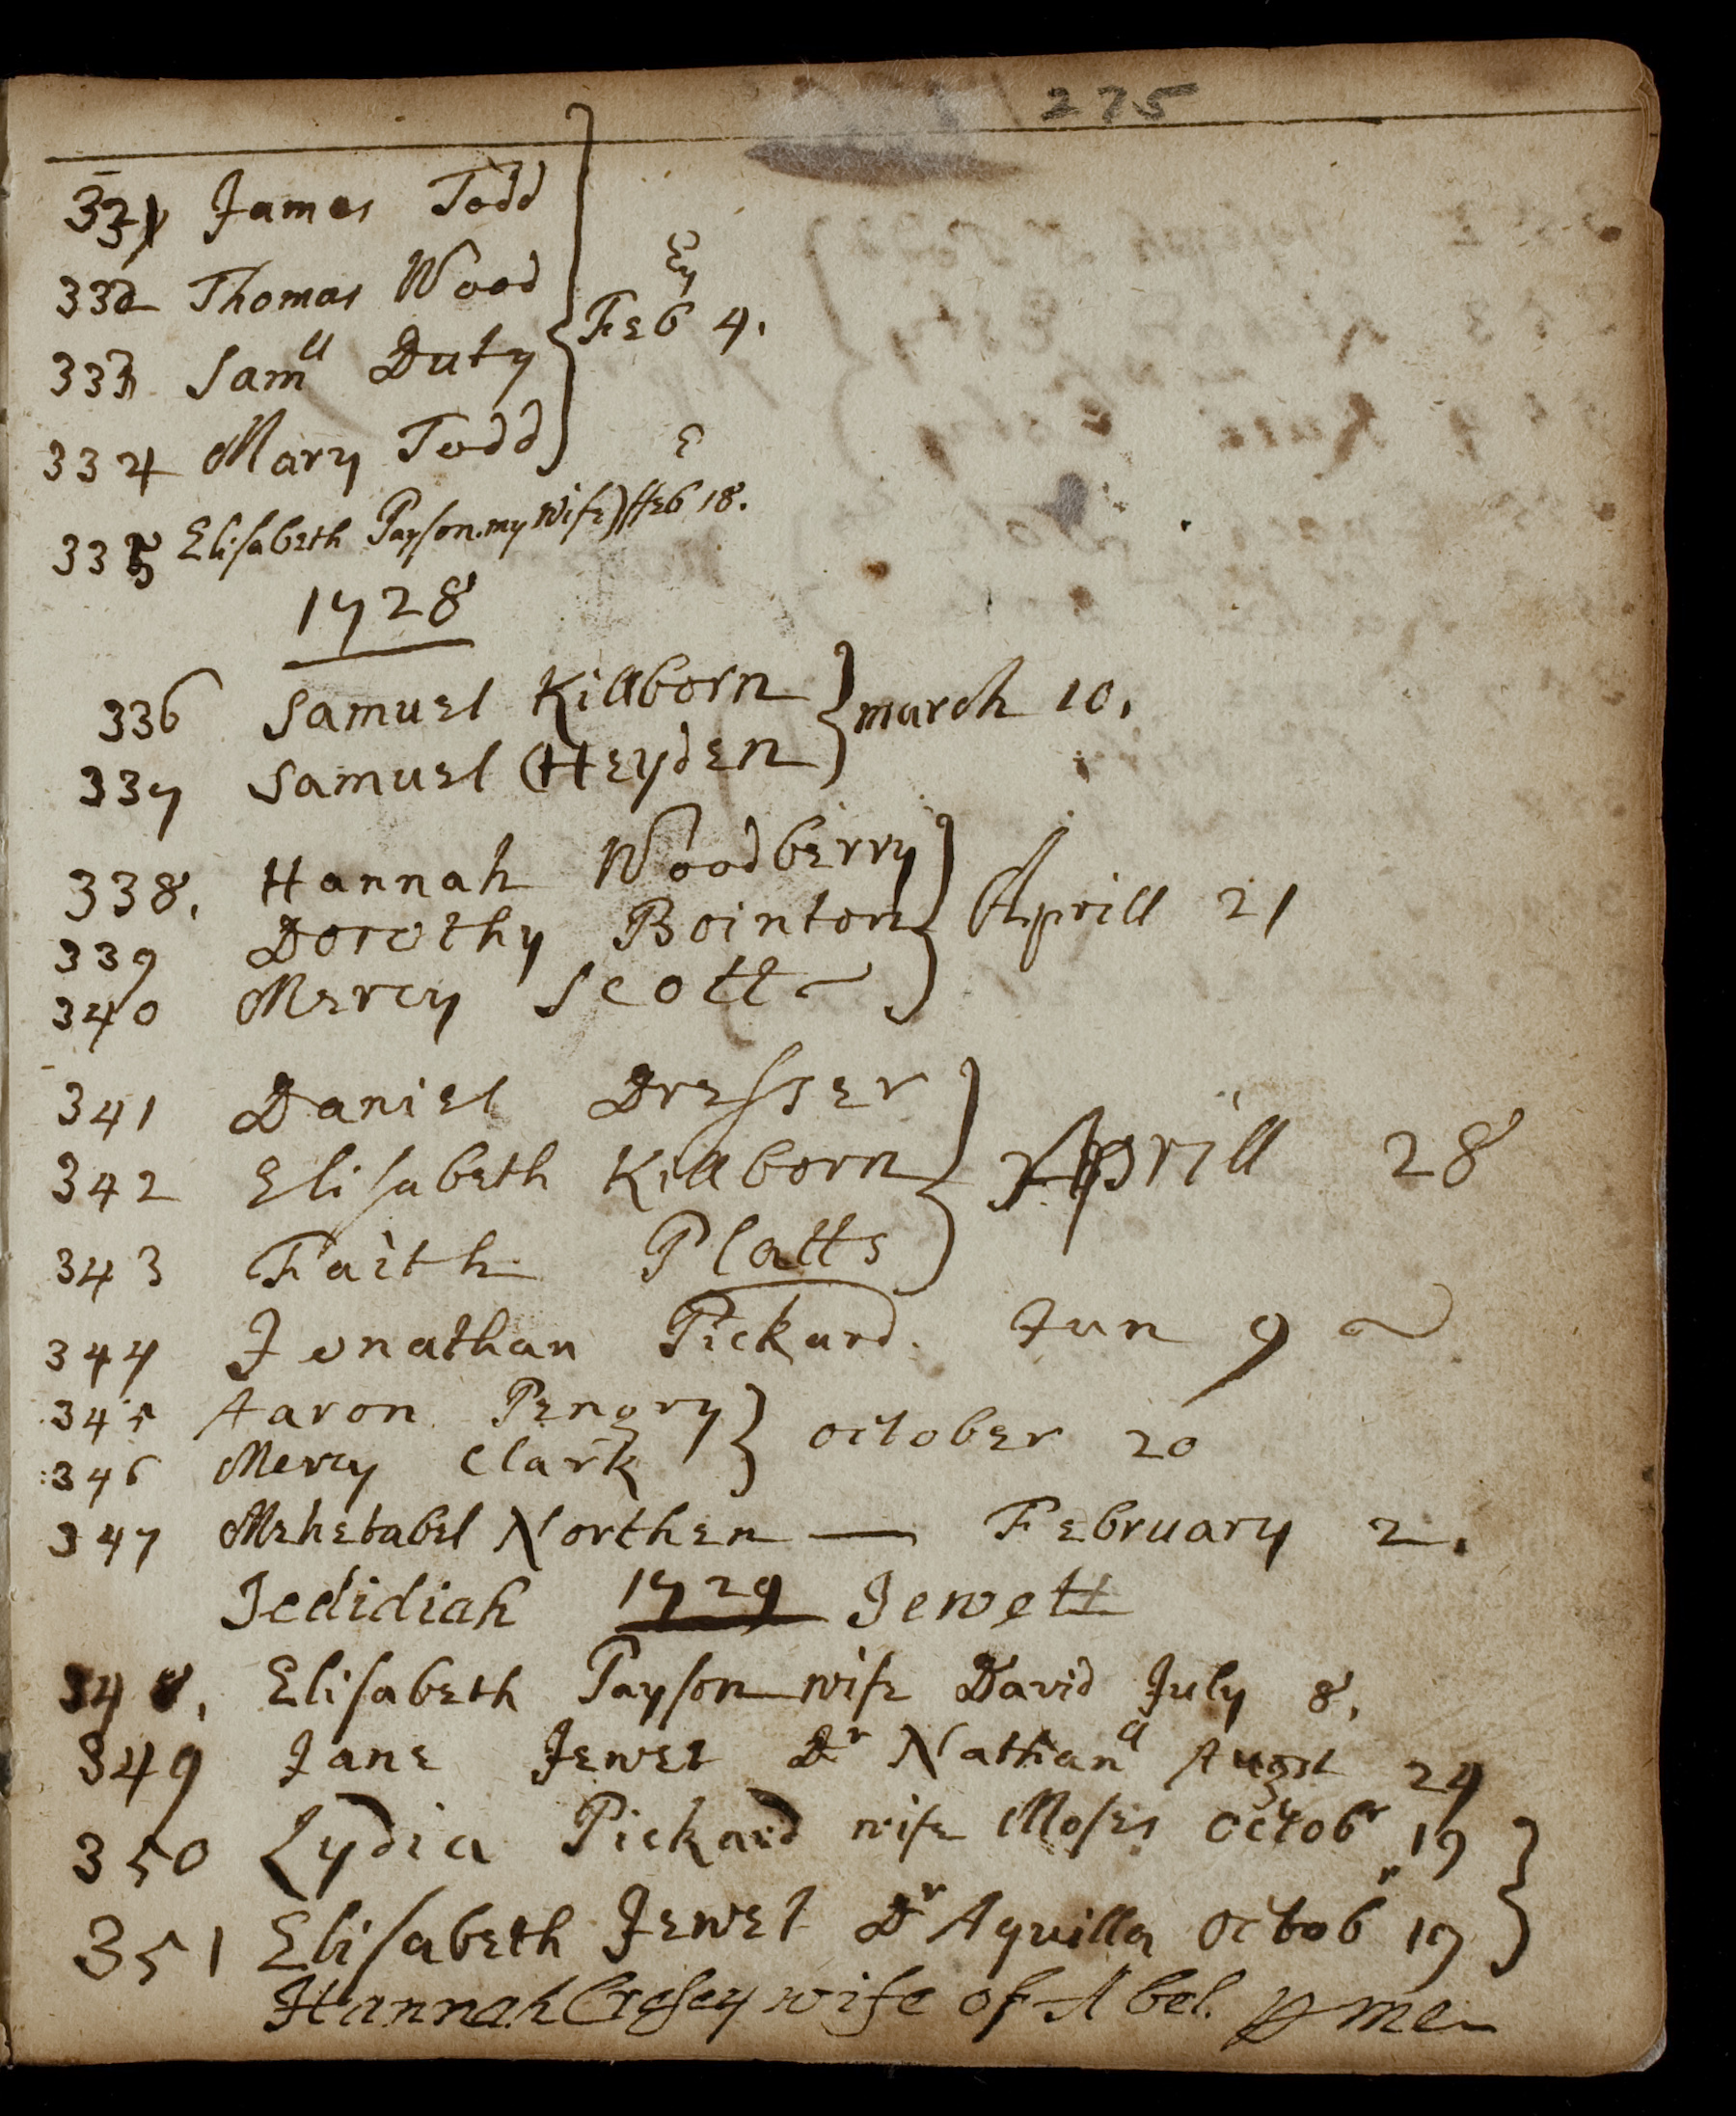 275
331 James Todd
332 Thomas Wood
Feb 4.
333 Samll Duty
334 Mary Todd
335 Elisabeth Payson. my wife) Feb 18.
1728
336 Samuel Killborn
march 10.
337 Samuel Heyden
338. Hannah Woodberry
339 Dorothy Bointon Aprill 21
340 Mercy Scott
341 Daniel Dresser
342 Elisabeth Killborn Aprill 28
343 Faith Platts
344 Jonathan Pickard. Jun 9
345 Aaron Pengry
october 20
346 Mercy Clark
347 Mehetabel Northen — February 2.
Jedidiah 1729 Jewett
348. Elisabeth Payson wife David July 8.
349 Jane Jewet Dr Nathanll Augst 24
350 Lydia Pickard wife Moses octobr 19
351 Elisabeth Jewet Dr Aquilla octobr 19
Hannah wife of Abel. me